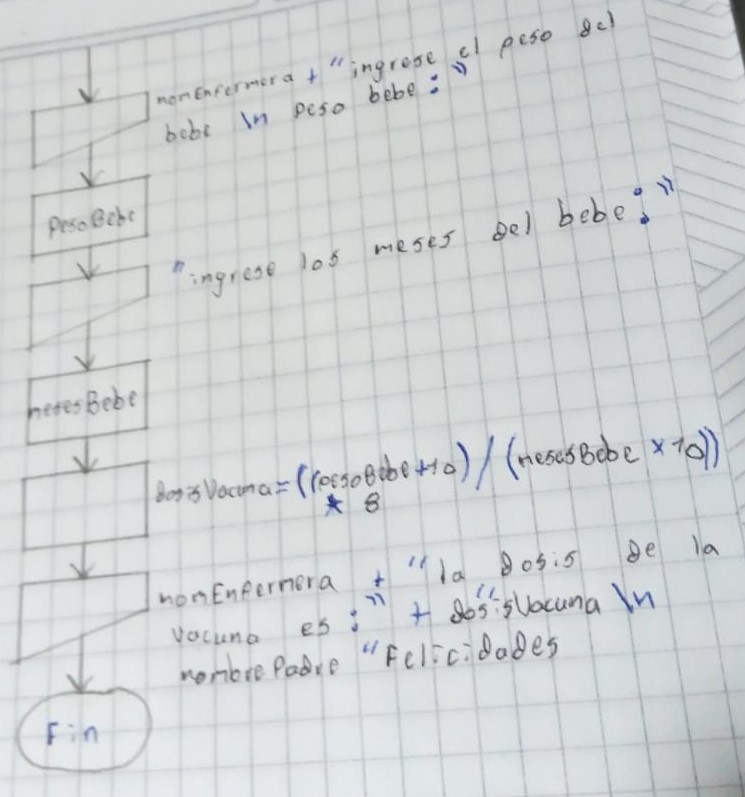 nomEnfermera + "ingrese el peso del
bebe \n peso bebe:"
PesoBebe
"ingrese los meses del bebe:"
mesesBebe
dosisVacuna=((pesoBebe+10)/(mesesBebe × 10))
* 8
nomEnfermera + "la dosis de la
vacuna es:" + dosisVacuna "\n
nombrePadre "Felicidades
Fin